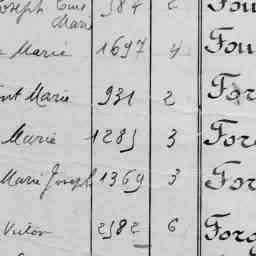 Joseph 584 2 Fou
Marie
Marie 1697 4 Fou
Marie 931 2 For
Marie 1285 3 Forg
Marie Joseph 1369 3 For
Victor 2582 6 Forg